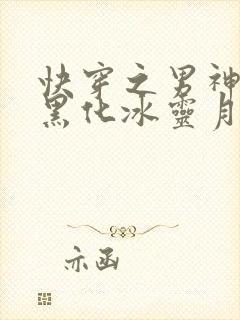 快穿之男神
黑化冰靈月
亦函